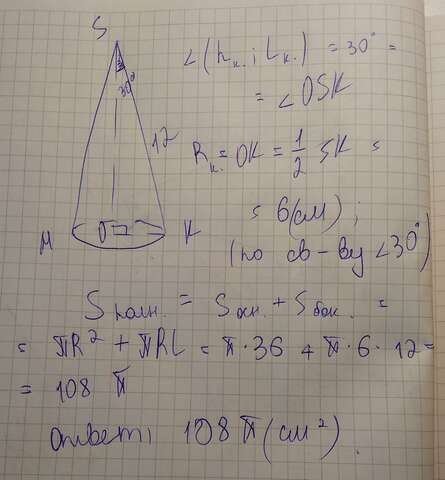 S
∠(hк. ; Lк.) = 30° =
= ∠OSK
30°
12
Rк. = OK = 1/2 SK =
= 6 (см) ;
(по св-ву ∠30°)
M O K
Sполн. = Sосн. + Sбок. =
= πR² + πRL = π · 36 + π · 6 · 12 =
= 108 π
Ответ: 108 π (см²).